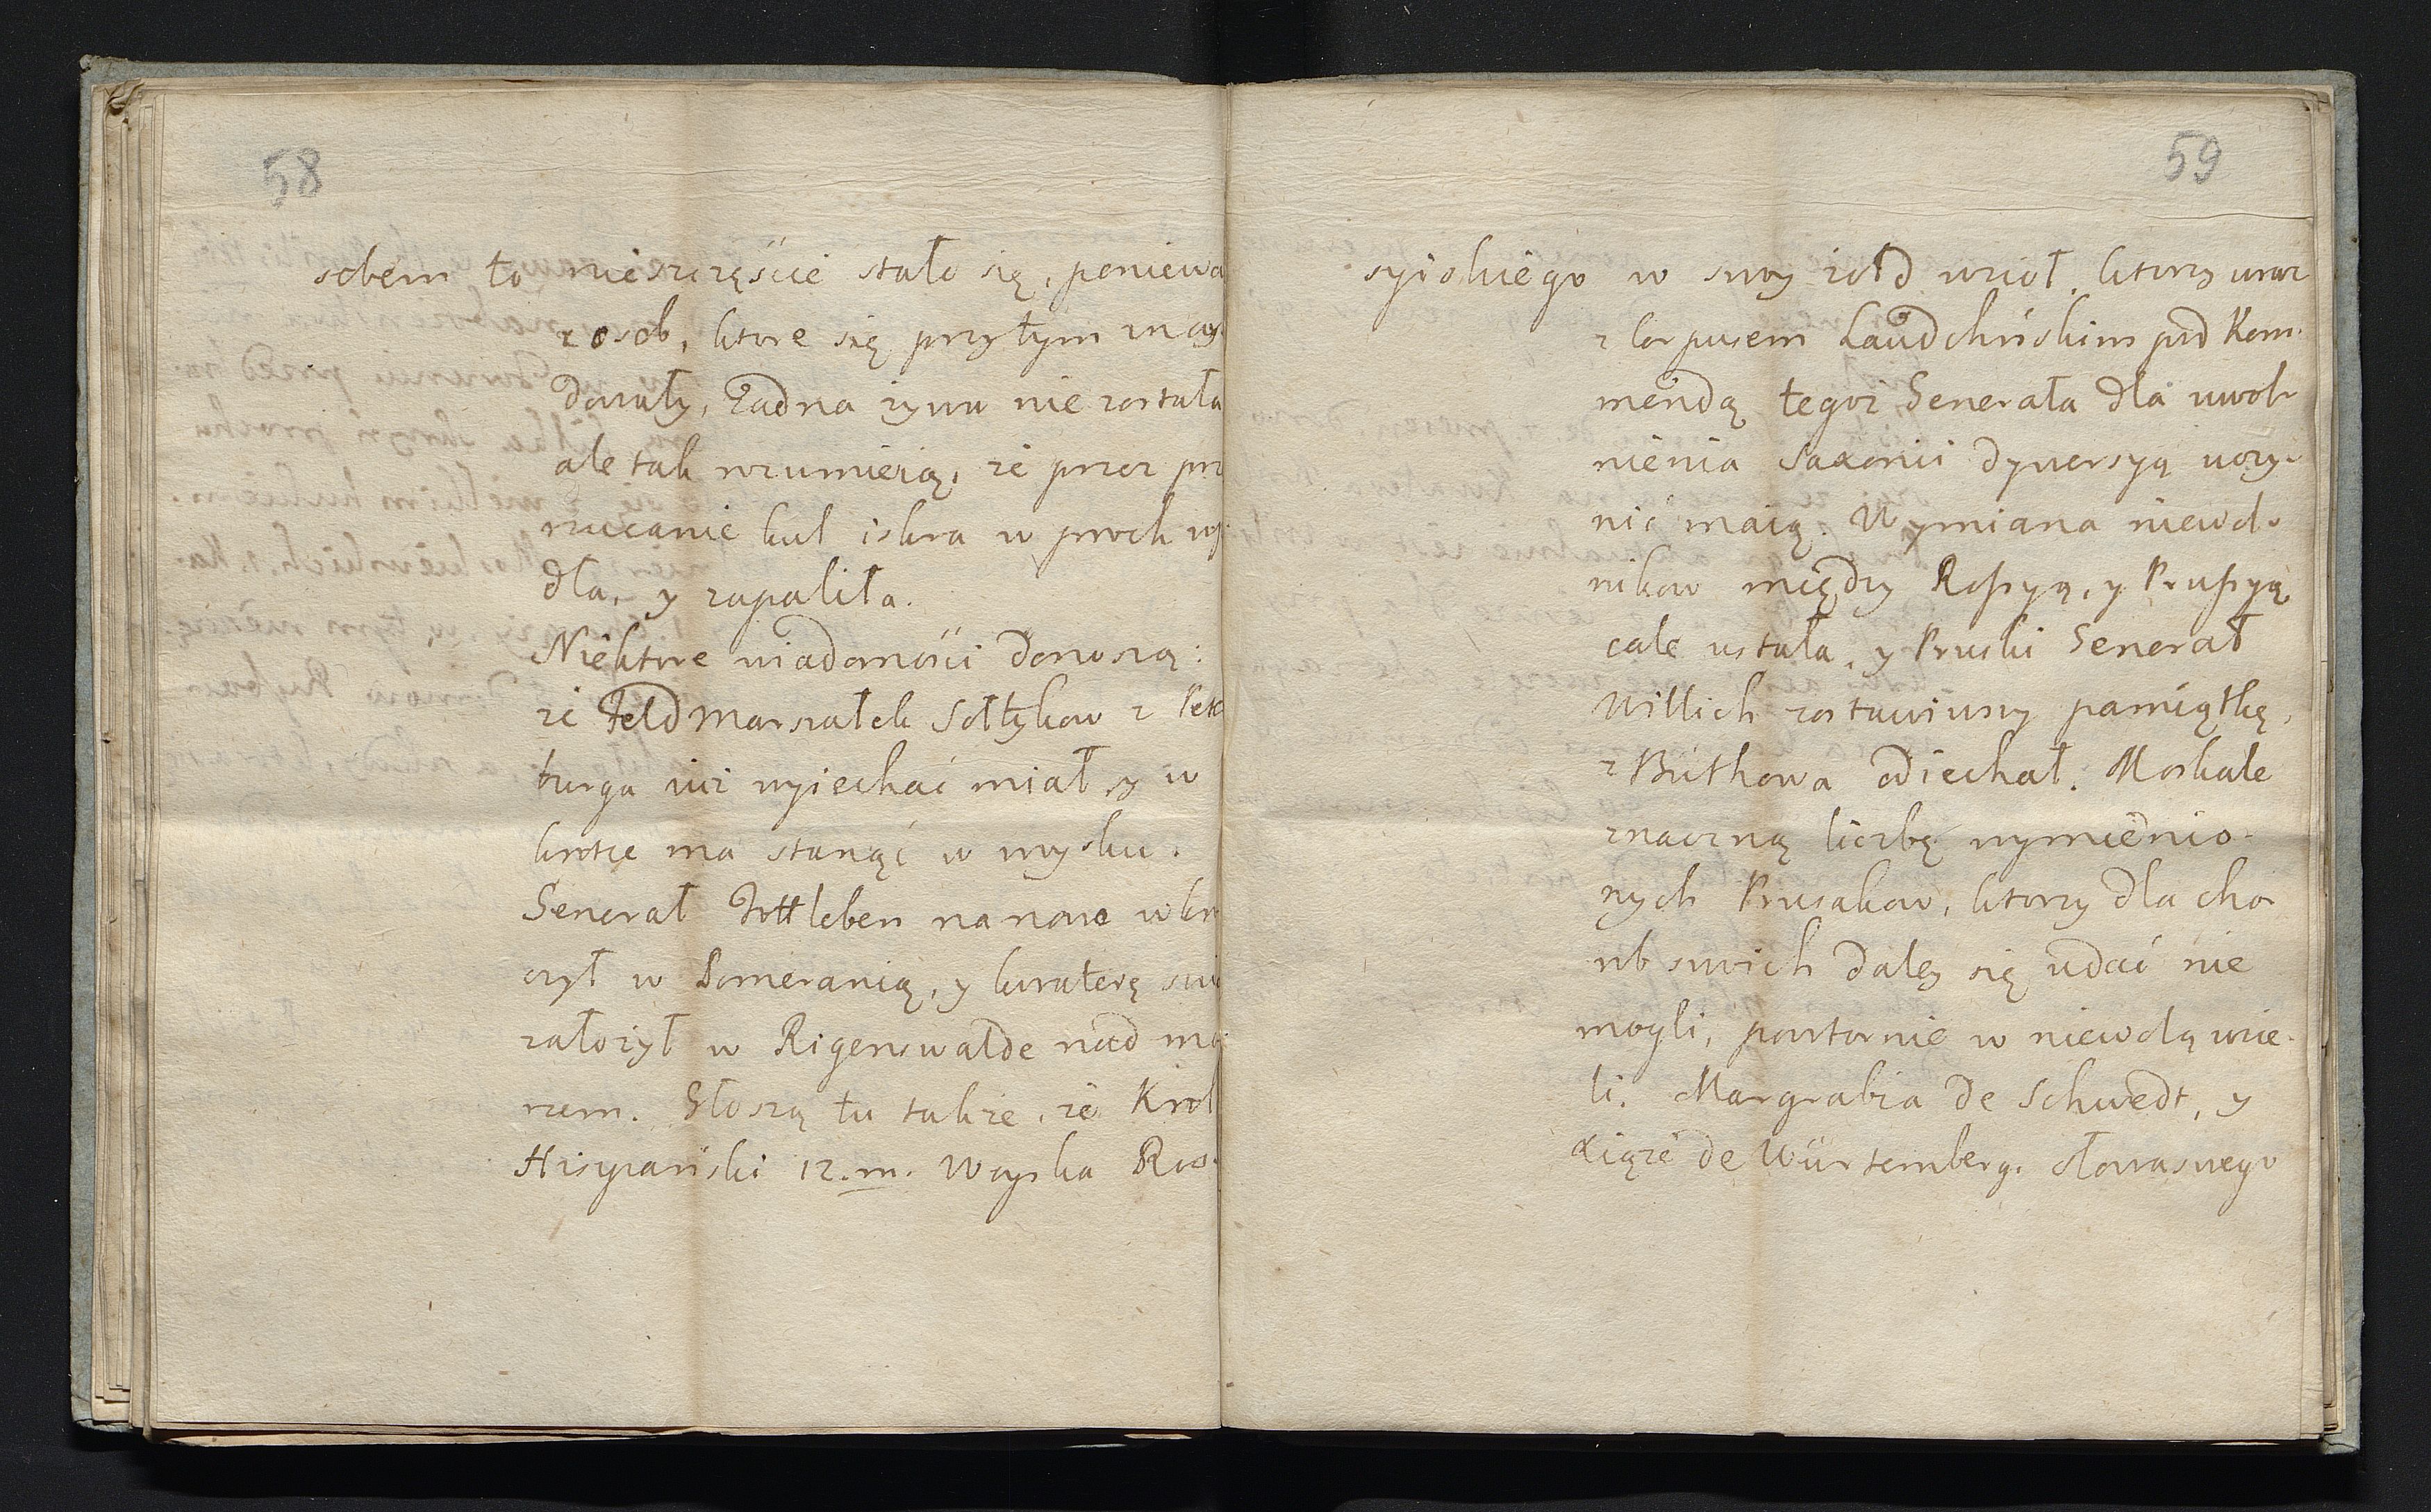 58
sobem to nieszczęście stało się, poniewa
z osob, ktore się przytym znay
dowały, Zadna zywa nie została
ale tak rozumieią, że przez prz
rzucanie kul iskra w proch wp
dła, y zapaliła.
Niektore wiadomości donoszą:
że Feld Marszałek Sołtykow z Pete
burga iuż wyiechać miał, y w
krotce ma stanąć w woysku.
Generał Tottleben na nowo wkro
czył w Pomeranią, y kwaterę swo
założył w Rigenswalde nad mo
rzem. Głoszą tu także, że Krol
Hiszpański 12.m. Woyska Ros-
59
syiskiego w swoy żołd wzioł, ktorzy wraz
z Corpusem Laudchńskim pod Kom-
mendą tegoż Generała dla uwol-
nienia Saxonii dywersyą uczy-
nić maią. Wymiana niewol-
nikow między Rossyą, y Prussyą
cale ustała, y Pruski Generał
Willich zostawiwszy pamiątkę,
z Buthowa odiechał. Moskale
znaczną liczbę wymienio-
nych Prusakow, ktorzy dla cho-
rob swoich daley się udać nie
mogli, powtornie w niewolą wzie-
li. Margrabia de Schwedt, y
Xiąże de Würtemberg. słowa swego